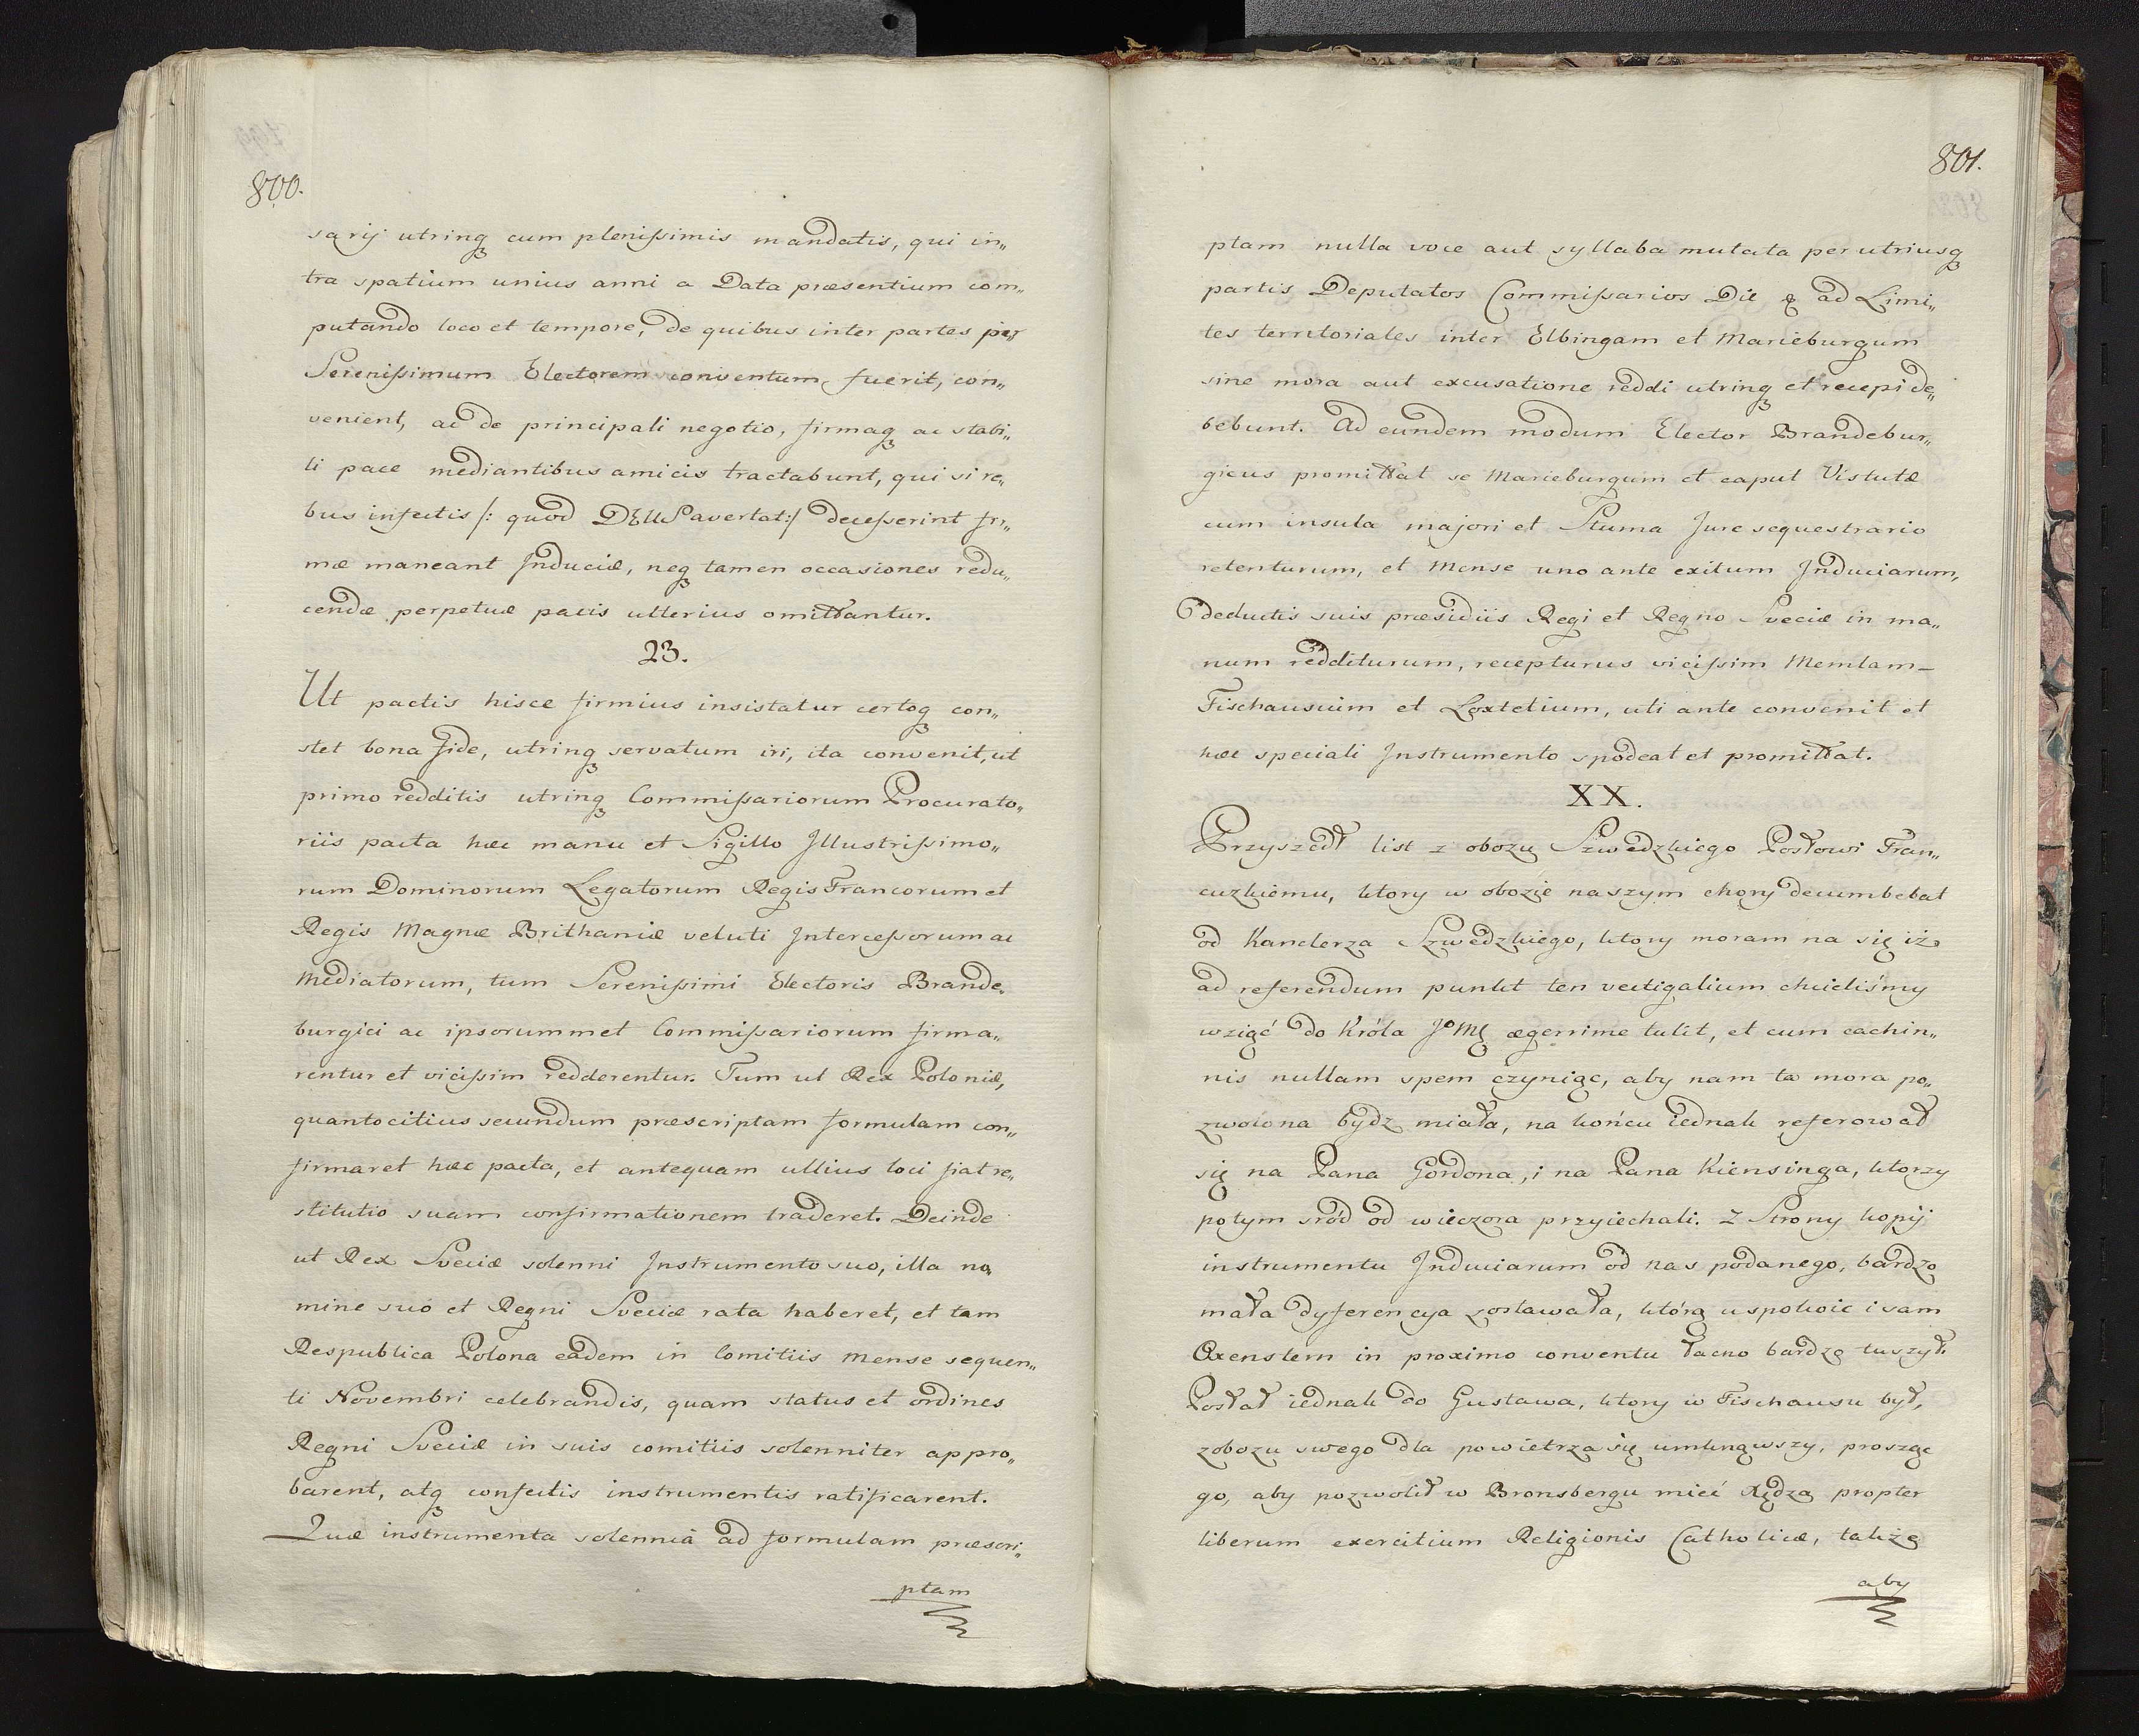 800.
sarij utrinq cum plenissimis mandatis, qui in„
tra spatium unius anni a Data præsentium com„
putando loco et tempore, de quibus inter partes per
Serenissimum Electorem conventum fuerit, con„
venient, ac de principali negotio, firmaq ac stabi„
li pace mediantibus amicis tractabunt, qui si re„
bus infectis /: quod DEUS avertat:/ decesserint fir„
mæ maneant Induciæ, neq tamen occasiones redu„
cendæ perpetuæ pacis ulterius omittantur.
23.
Ut pactis hisce firmius insistatur certoq con„
stet bona fide, utrinq servatum iri, ita convenit, ut
primo redditis utrinq Commissariorum Procurato„
riis pacta hæc manu et Sigillo Illustrissimo„
rum Dominorum Legatorum Regis Francorum et
Regis Magnæ Brithaniæ veluti Intercessorum ac
Mediatorum, tum Serenissimi Electoris Brande„
burgici ac ipsorummet Commissariorum firma„
rentur et vicissim redderentur. Tum ut Rex Poloniæ,
quantocitius secundum præscriptam formulam con„
firmaret hæc pacta, et antequam ullius loci fiat re„
stitutio suam confirmationem traderet. Deinde
ut Rex Sveciæ solenni Instrumento suo, illa no„
mine suo et Regni Sveciæ rata haberet, et tam
Respublica Polona eadem in Comitiis mense sequen„
ti Novembri celebrandis, quam status et ordines
Regni Sveciæ in suis comitiis solenniter appro„
barent, atq confectis instrumentis ratificarent.
Quæ instrumenta solennia ad formulam præscri„
ptam
801.
ptam nulla voce aut syllaba mutata per utriusq
partis Deputatos Commissarios Die ad Limi„
tes territoriales inter Elbingam et Marieburgum
sine mora aut excusatione reddi utrinq et recepi de„
bebunt. Ad eundem modum Elector Brandebur„
gicus promittat se Marieburgum et caput Vistulæ
cum insula majori et Stuma Jure sequestrario
retenturum, et Mense uno ante exitum Induciarum,
deductis suis præsidiis Regi et Regno Sveciæ in ma„
num redditurum, recepturus vicissim Memlam–
Fischausuim et Loxtetium, uti ante convenit et
hæc speciali Instrumento spodeat et promittat.
XX.
Przyszedł list z obozu Szwedzkiego Posłowi Fran„
cuzkiemu, ktory w obozie naszym chory decumbebat
od Kanclerza Szwedzkiego, ktory moram na się iż
ad referendum punkt ten vectigalium chcieliśmy
wziąć do Króla JoMę ægerrime tulit, et cum cachin„
nis nullam spem czyniąc, aby nam ta mora po„
zwolona bydz miała, na końcu iednak referował
się na Pana Gordona, i na Pana Kiensinga, ktorzy
potym sród od wieczora przyiechali. Z Strony kopij
instrumentu Induciarum od nas podanego, bardzo
mała dyferencya zostawała, którą uspokoic i sam
Oxenstern in proximo conventu łacno bardzo tuszył.
Posłał iednak do Gustawa, ktory w Fischausu był,
z obozu swego dla powietrza się umknąwszy, prosząc
go, aby pozwolił w Bronsbergu mieć Xędza propter
liberum exercitium Religionis Catholicæ, także
aby